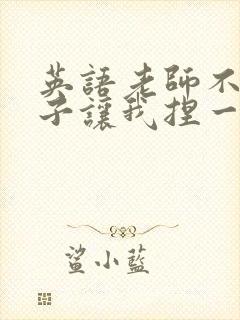 英語老師不
子讓我捏一
鯊小藍